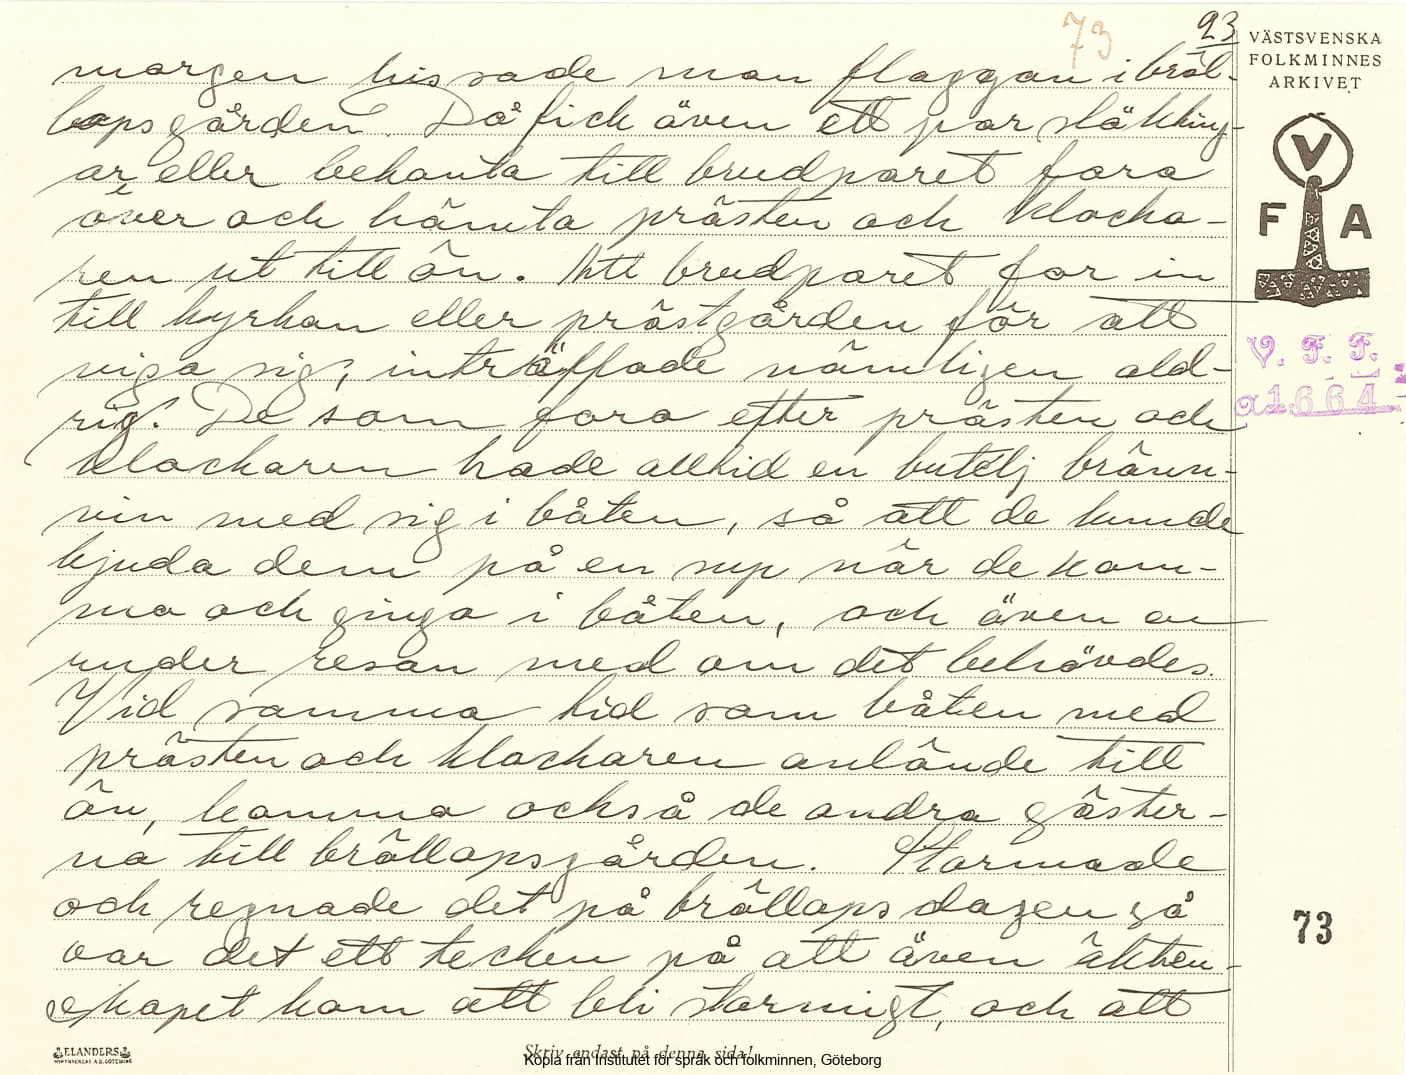 73
23
VÄSTSVENSKA
FOLKMINNES
ARKIVET
morgen hissade man flaggan i bröl-
lopsgården. Då fick även ett par släkting-
ar eller bekanta till brudparet fara
över och hämta prästen och klocka-
ren ut till ön. Att brudparet for in
till kyrkan eller prästgården för att
viga sig, inträffade nämligen ald-
rig. De som foro efter prästen och
klockaren hade alltid en butelj bränn-
vin med sig i båten, så att de kunde
bjuda dem på en sup när de kom-
mo och gingo i båten, och även en
under resan med om det behövdes.
Vid samma tid som båten med
prästen och klockaren anlände till
ön, kommo också de andra gäster-
na till bröllopsgården. Stormade
och regnade det på bröllopsdagen så
var det ett tecken på att även äkten-
skapet kom att bli stormigt, och att
V
F A
V. F. F.
a1.664
73
ELANDERS
Skriv endast på denna sida!
Kopia från Institutet för språk och folkminnen, Göteborg